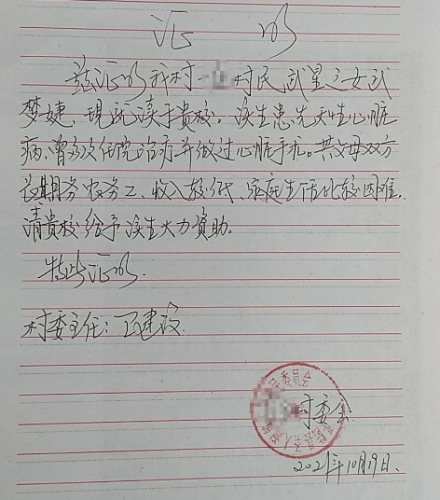 证 明
兹证明我村 村民武星之女武
梦婕,现就读于贵校。该生患先天性心脏
病,曾多次住院治疗并做过心脏手术。其父母双方
长期务农务工、收入较低、家庭生活比较困难,
请贵校给予该生大力资助。
特此证明.
村委主任:王建设
村委会
2021年10月19日.